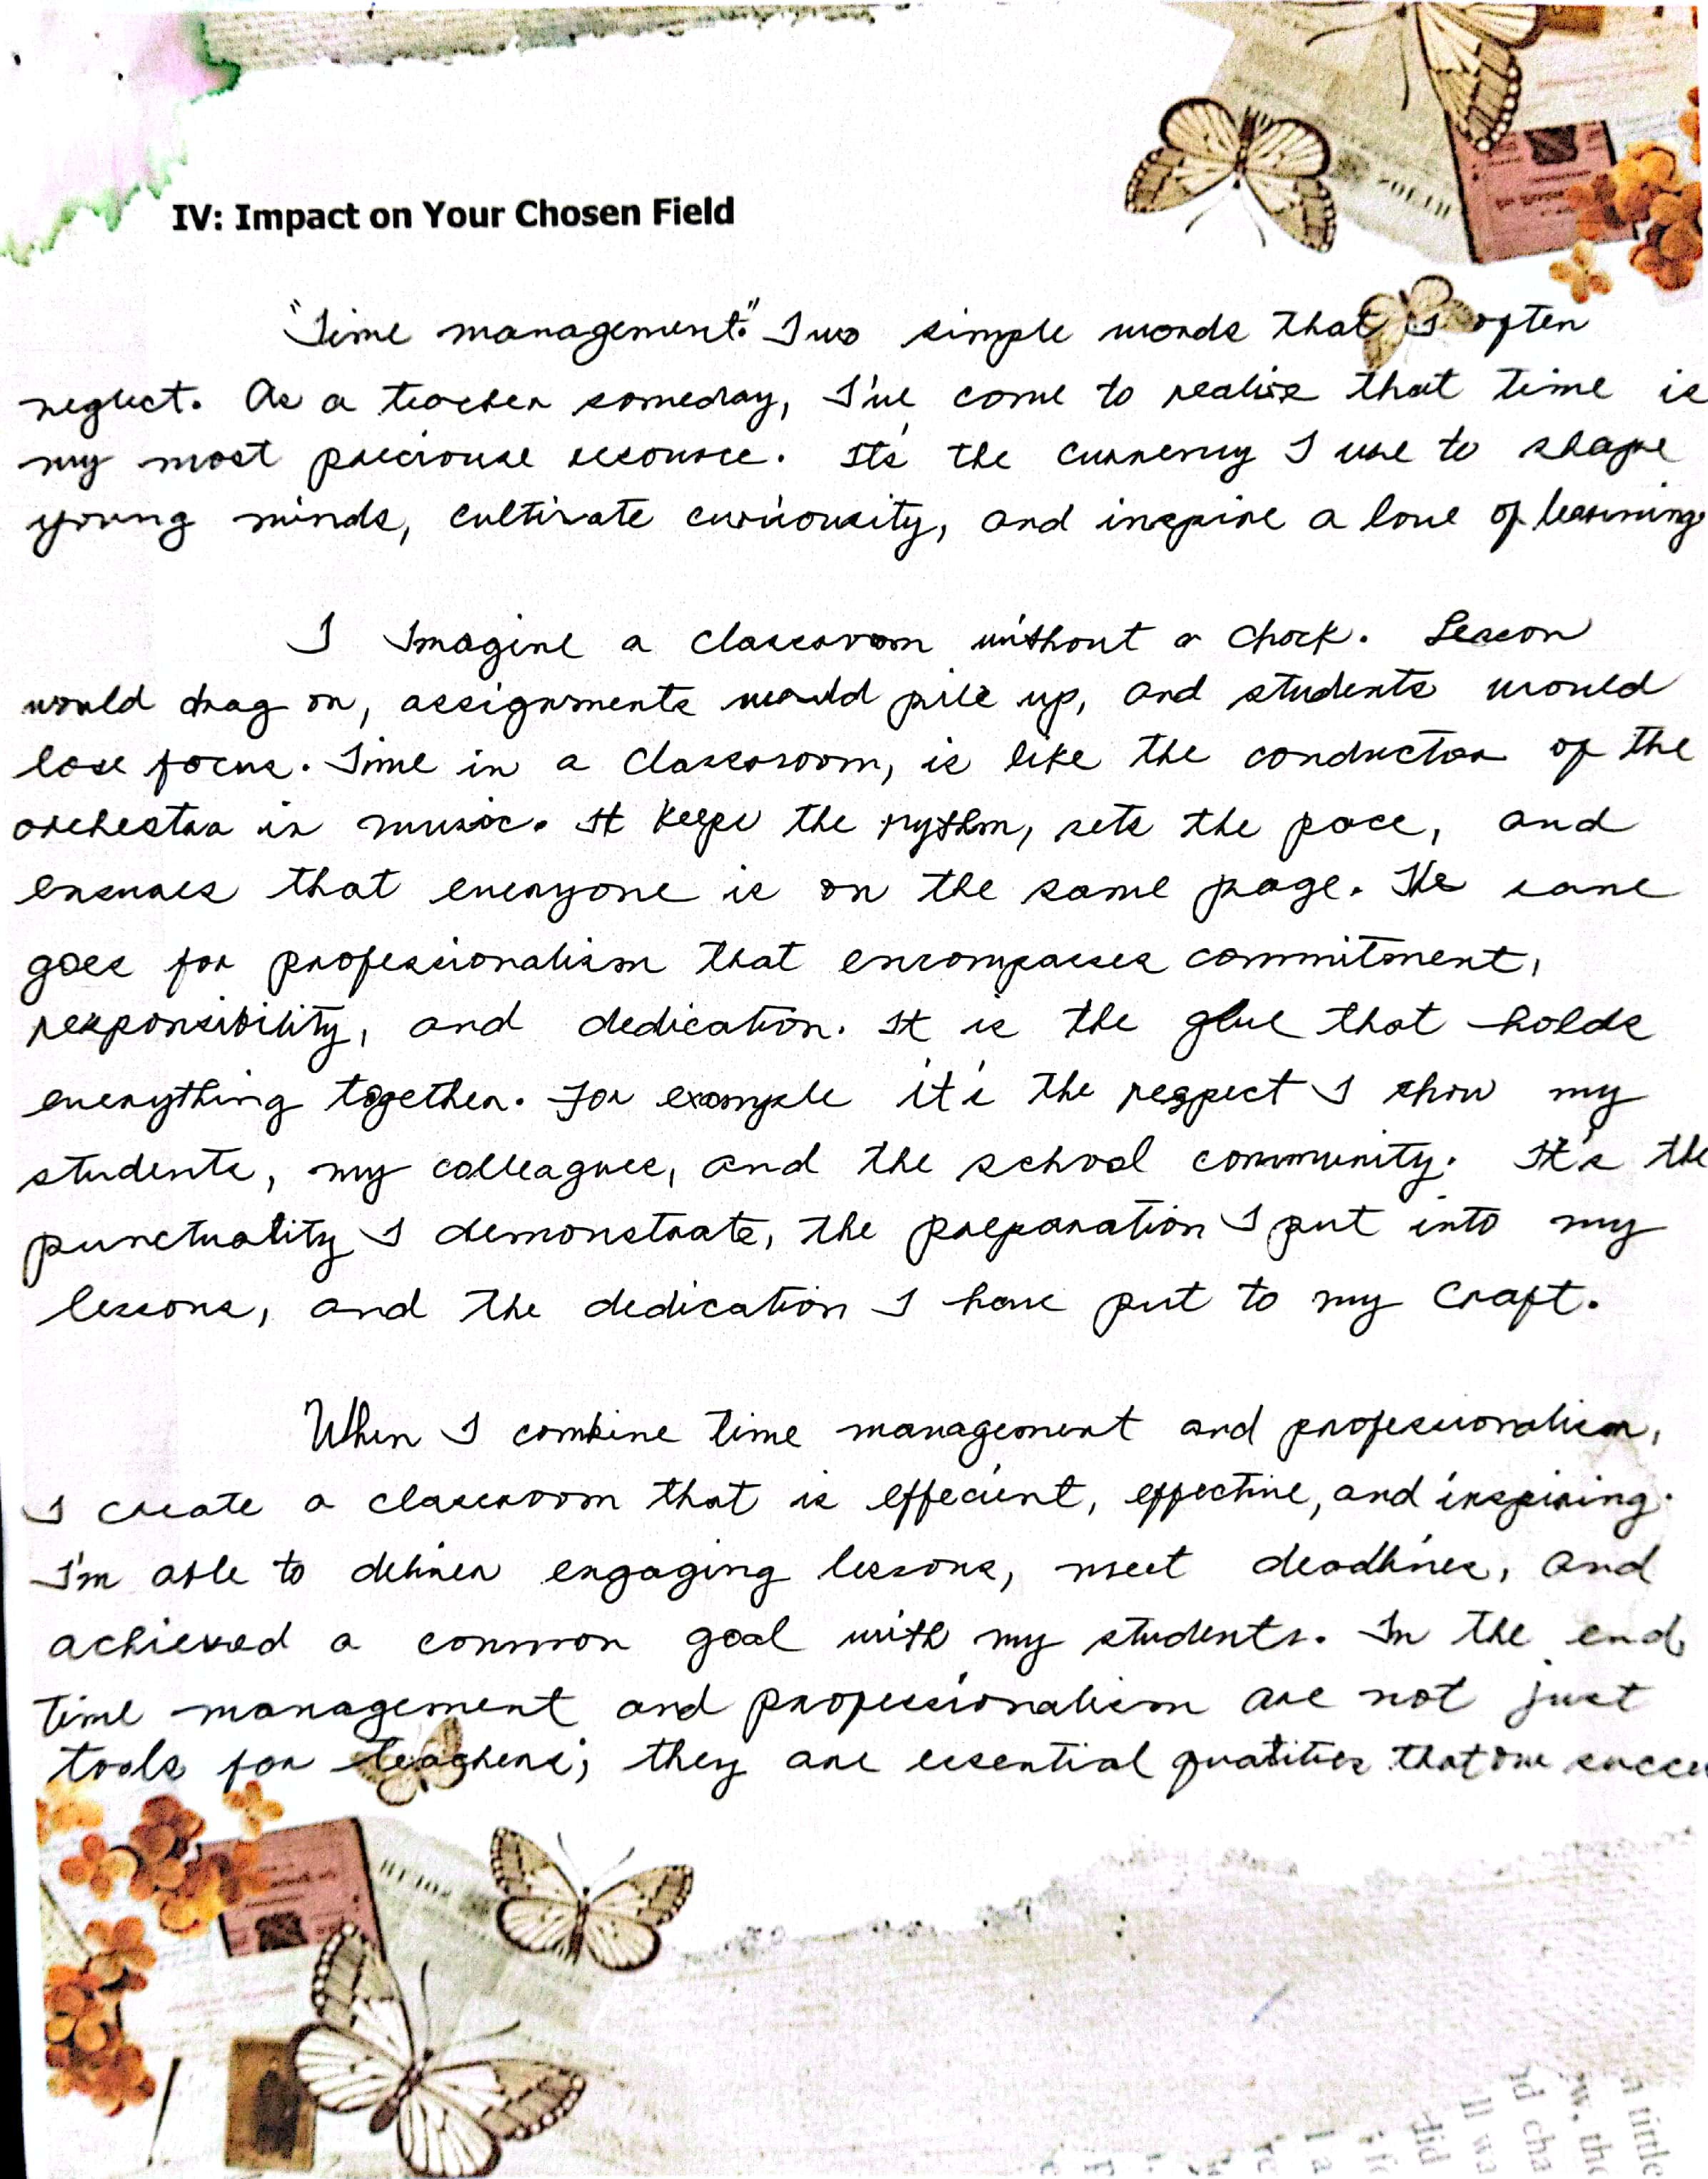 IV: Impact on Your Chosen Field
"Time management." Two simple words that I often
neglect. As a teacher someday, I've come to realize that time is
my most preciouse resource. It's the currency I use to shape
young minds, cultivate curiousity, and inspire a love of learning.
I Imagine a classroom without a clock. Lesson
would drag on, assignments would pile up, and students would
lose focus. Time in a classroom, is like the conductor of the
orchestra in music. It keeps the rythm, sets the pace, and
ensures that everyone is on the same page. The same
goes for professionalism that encompasses commitment,
responsibility, and dedication. It is the glue that holds
everything together. For example it's the respect I show my
students, my colleagues, and the school community. It's the
punctuality I demonstrate, the preparation I put into my
lessons, and the dedication I have put to my craft.
When I combine time management and professionalism,
I create a classroom that is effecient, effective, and inspiring.
I'm able to deliver engaging lessons, meet deadlines, and
achieved a common goal with my students. In the end,
time management and professionalism are not just
tools for teachers; they are essential qualities that our